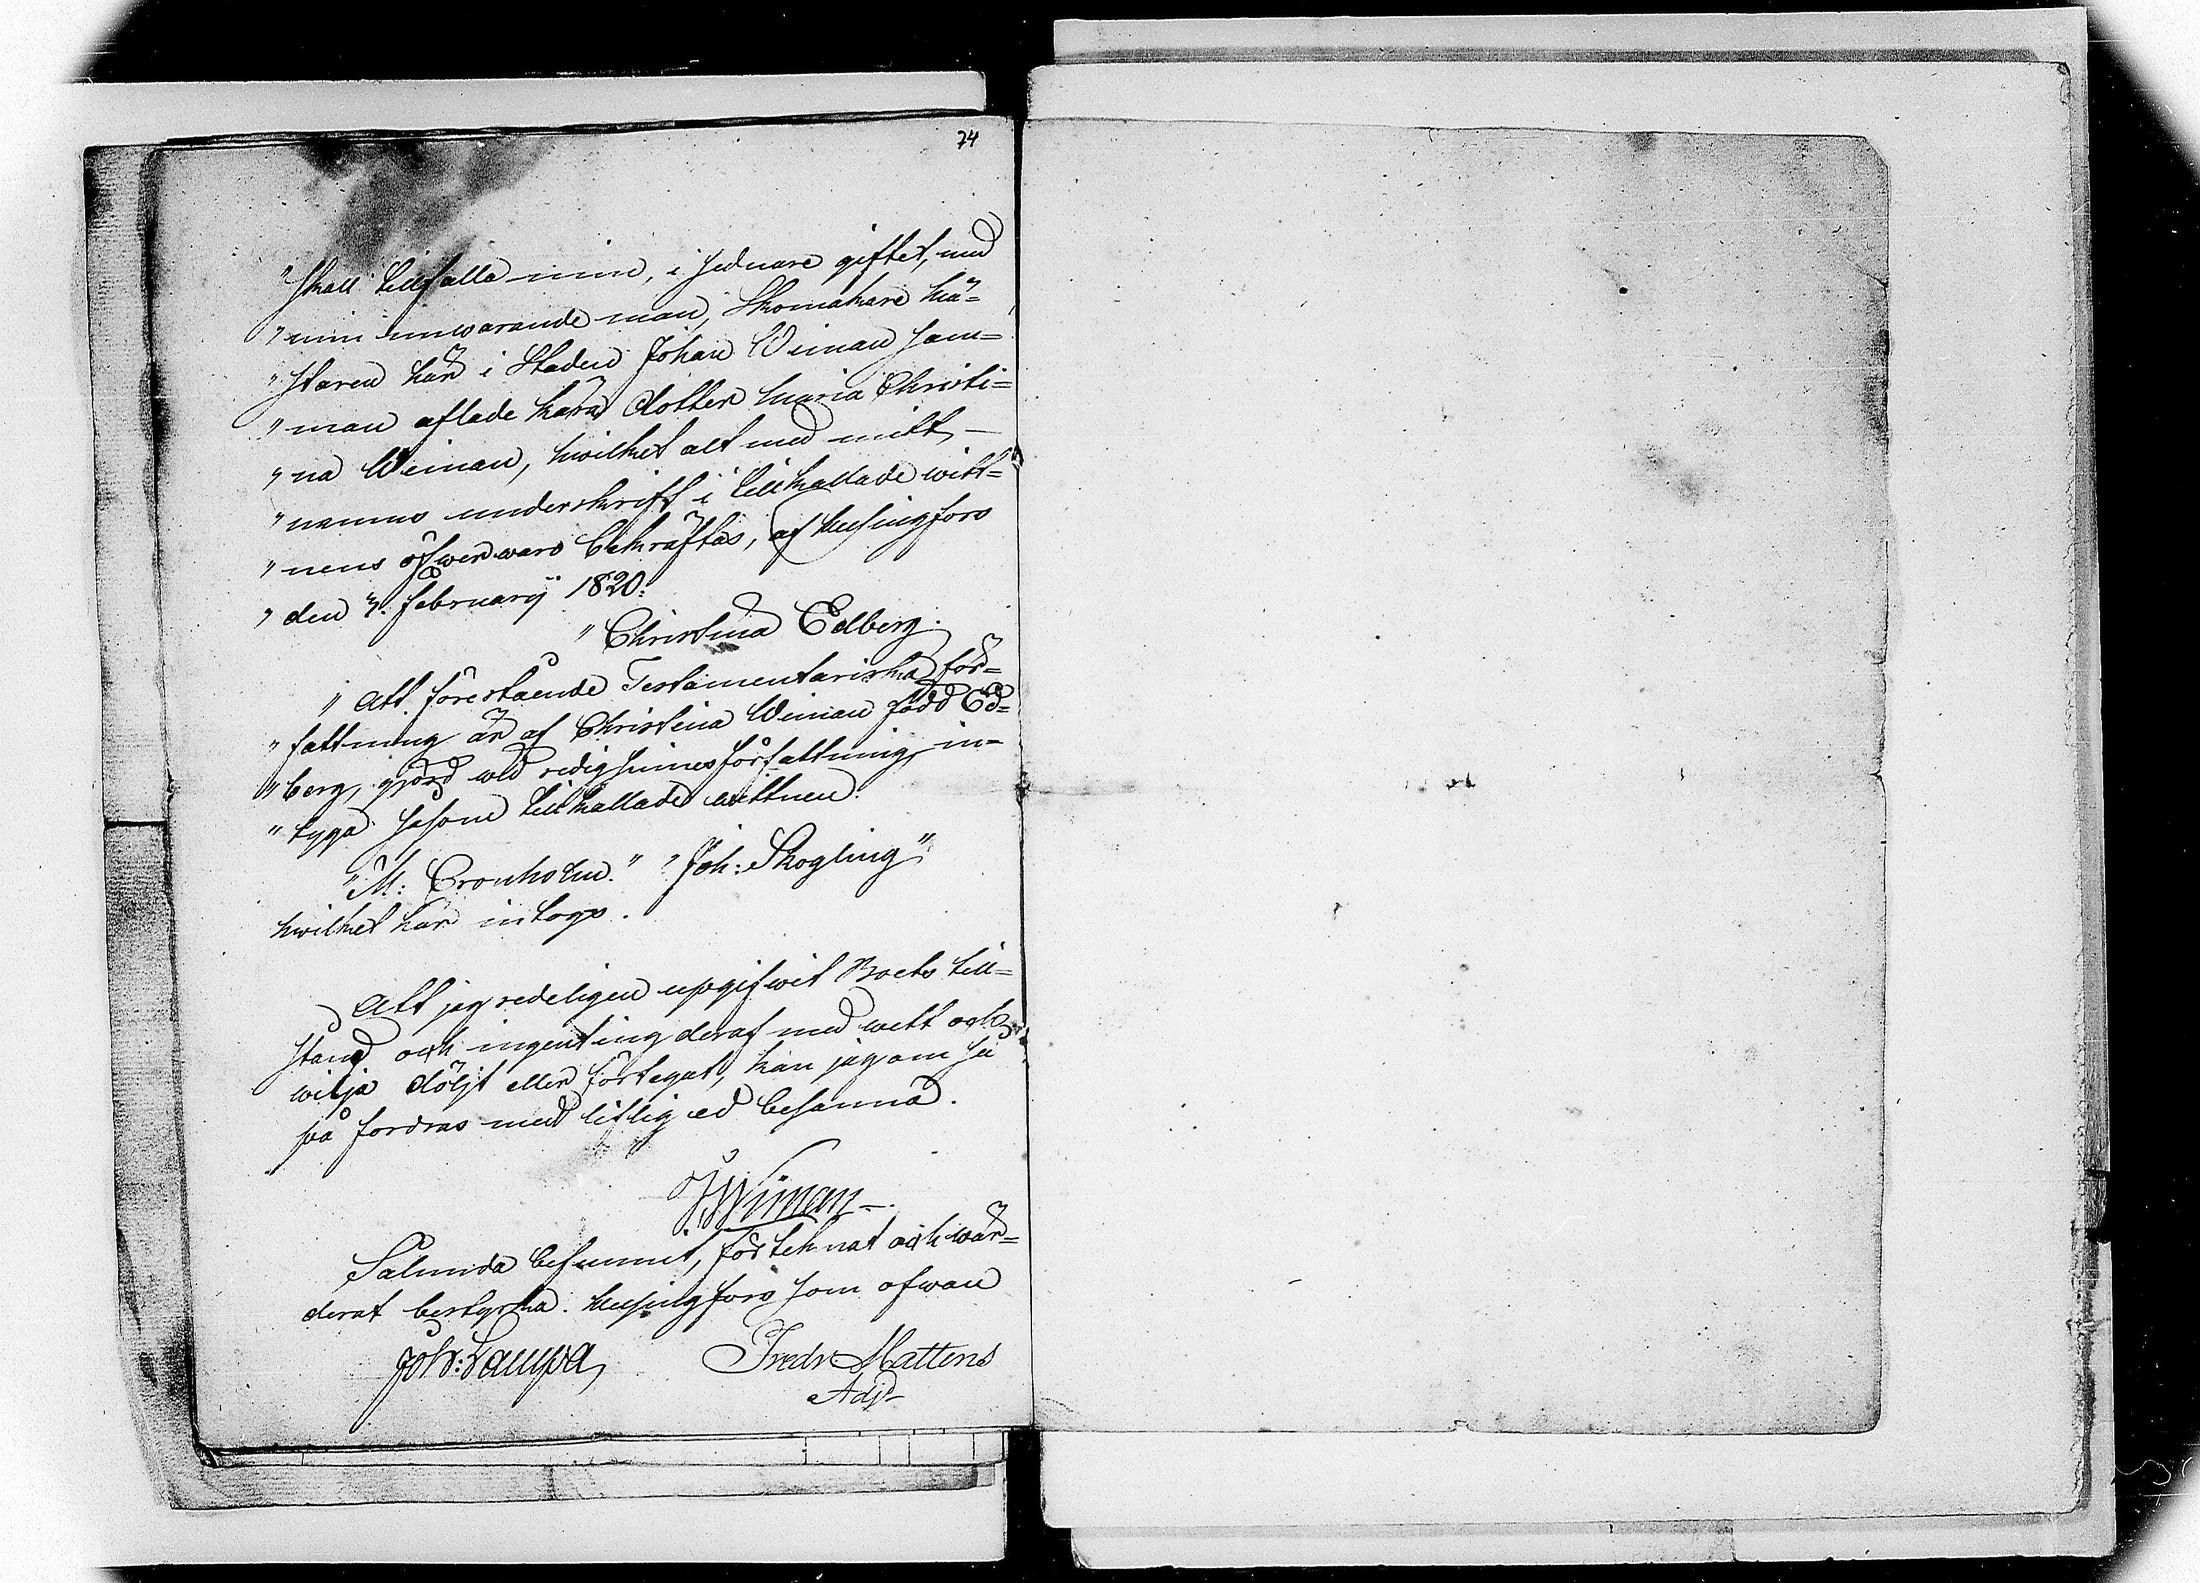 74
" skall tillfalla min, i sednare giftet, med
" min nuwarande man, Skomakare Mä=
" staren här i Staden Johan Wiman sam=
" man aflade kära dotter Maria Christi=
" na Wiman, hwilket alt med mitt
" namns underskrift i tillkallade witt=
" nens öfwerwaro bekräftas, af Helsingfors
" den 3. Februarÿ 1820.
" Christina Edberg.
" Att förestående Testamentariska för=
" fattning är af Christina Wiman född Ed=
" berg, gjord wid redig sinnesförfattning, in=
" tyga såsom tillkallade wittnen.
" M: Cronholm. " " Joh: Skogling "
hwilket här intogs.
Att jag redeligen upgifwit Boets till=
stånd och ingenting deraf med wett och
wilja döljt eller förtegat, kan jag om så
på fordras med liflig ed besanna.
J Wiman
Sålunda befunnit, förteknat och wär=
derat bestyrka. Helsingfors som ofwan
Joh: Lampa Fredr Mattens
Adj